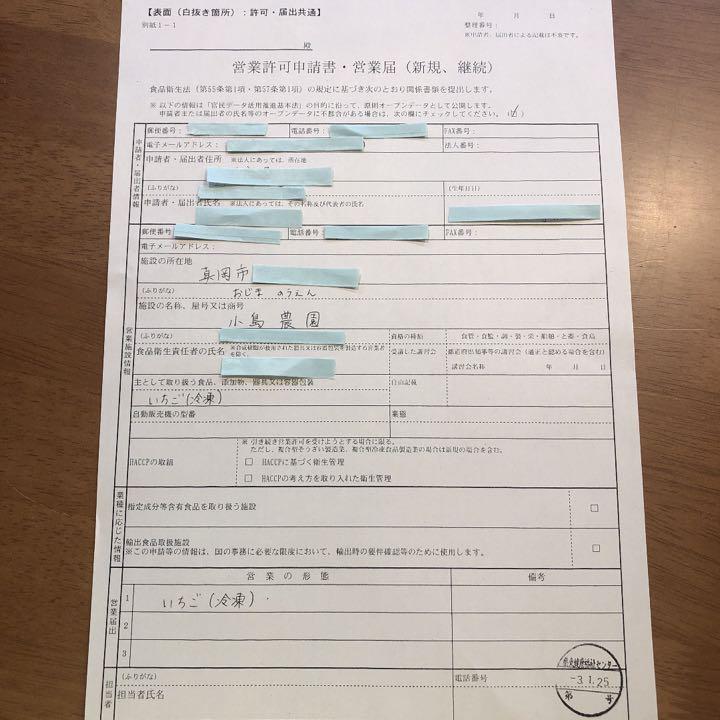 【表面（白抜き箇所）：許可・届出共通】
別紙1－1
年 月 日
整理番号：
※申請者、届出者による記載は不要です。
殿
営業許可申請書・営業届（新規、継続）
食品衛生法（第55条第1項・第57条第1項）の規定に基づき次のとおり関係書類を提出します。
※ 以下の情報は「官民データ活用推進基本法」の目的に沿って、原則オープンデータとして公開します。
申請者または届出者の氏名等のオープンデータに不都合がある場合は、次の欄にチェックしてください。（ レ ）
申請者・届出者情報
郵便番号： 電話番号： FAX番号：
電子メールアドレス： 法人番号：
申請者・届出者住所 ※法人にあっては、所在地
（ふりがな） （生年月日）
申請者・届出者氏名 ※法人にあっては、その名称及び代表者の氏名
営業施設情報
郵便番号 電話番号： FAX番号：
電子メールアドレス：
施設の所在地
真岡市
（ふりがな） おじま のうえん
施設の名称、屋号又は商号
小島農園
（ふりがな） 資格の種類 食管・食監・調・製・栄・船舶・と畜・食鳥
食品衛生責任者の氏名 ※合成樹脂が使用された器具又は容器包装を製造する営業者を除く。 受講した講習会 都道府県知事等の講習会（適正と認める場合を含む）
講習会名称 年 月 日
主として取り扱う食品、添加物、器具又は容器包装 自由記載
いちご（冷凍）
自動販売機の型番 業態
HACCPの取組
※ 引き続き営業許可を受けようとする場合に限る。
ただし、複合型そうざい製造業、複合型冷凍食品製造業の場合は新規の場合を含む。
□ HACCPに基づく衛生管理
□ HACCPの考え方を取り入れた衛生管理
業種に応じた情報
指定成分等含有食品を取り扱う施設 □
輸出食品取扱施設 □
※この申請等の情報は、国の事務に必要な限度において、輸出時の要件確認等のために使用します。
営業届出
営業の形態 備考
1 いちご（冷凍）
2
3
担当者
（ふりがな） 電話番号
担当者氏名
-3.1.25
第 号